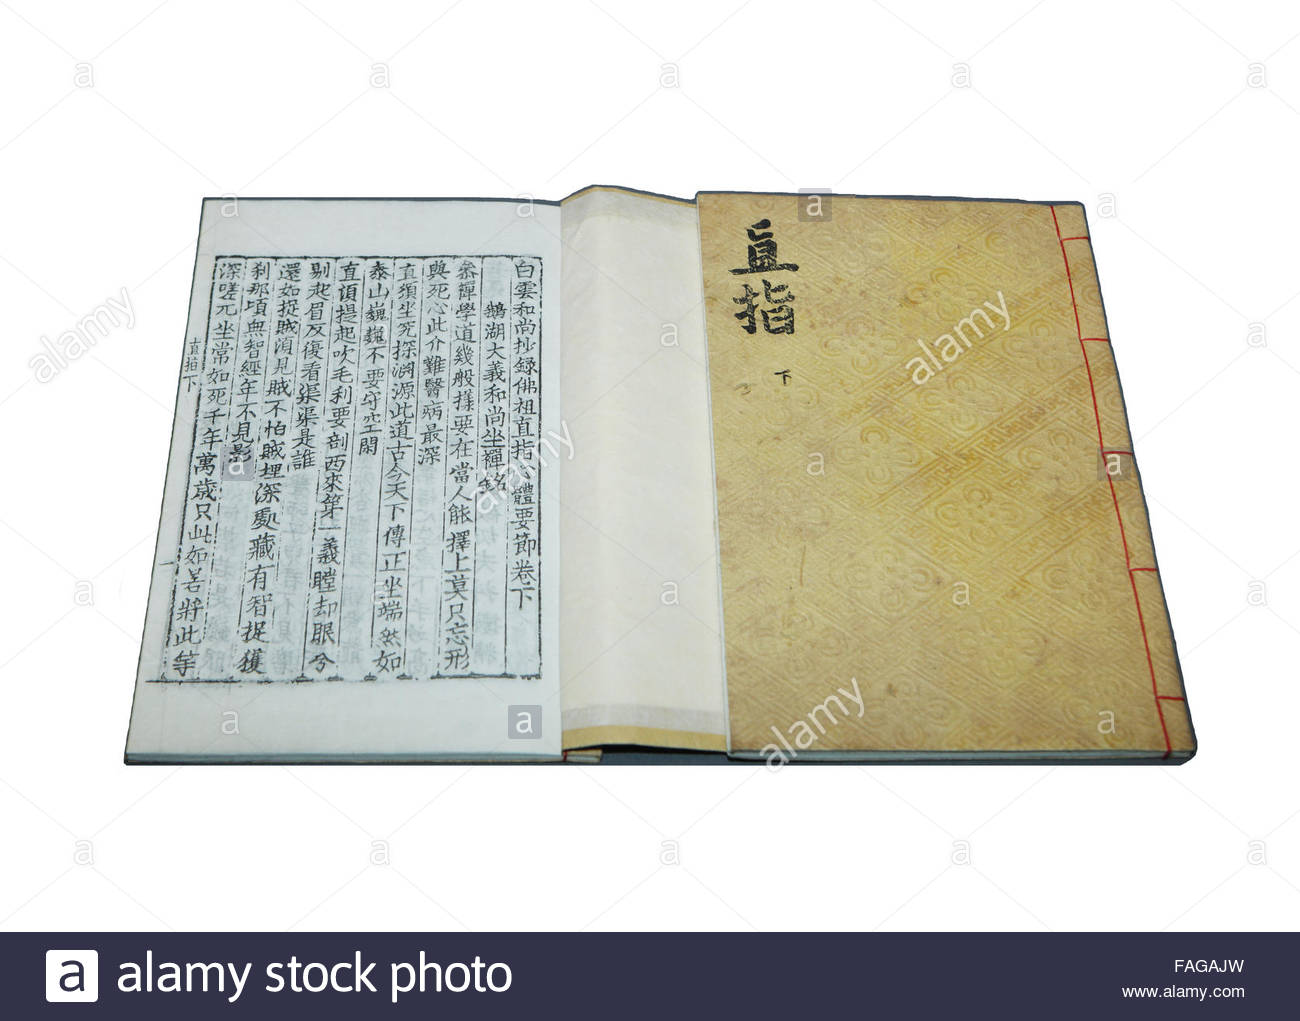 直指
下
白雲和尚抄録佛祖直指心體要節卷下
鵝湖大義和尚坐禪銘
叅禪學道幾般樣要在當人能擇上莫只忘形
與死心此介難醫病最深
直須坐究探淵源此道古今天下傳正坐端然如
泰山巍巍不要守空閑
直須提起吹毛利要剖西來第一義瞠却眼兮
剔起眉反復看渠渠是誰
還如捉賊須見賊不怕賊埋深處藏有智捉獲
刹那頃無智經年不見影
深嗟兀坐常如死千年萬歲只此如若將此等
直指下
alamy
alamy
alamy
alamy
alamy
a alamy stock photo
FAGAJW
www.alamy.com